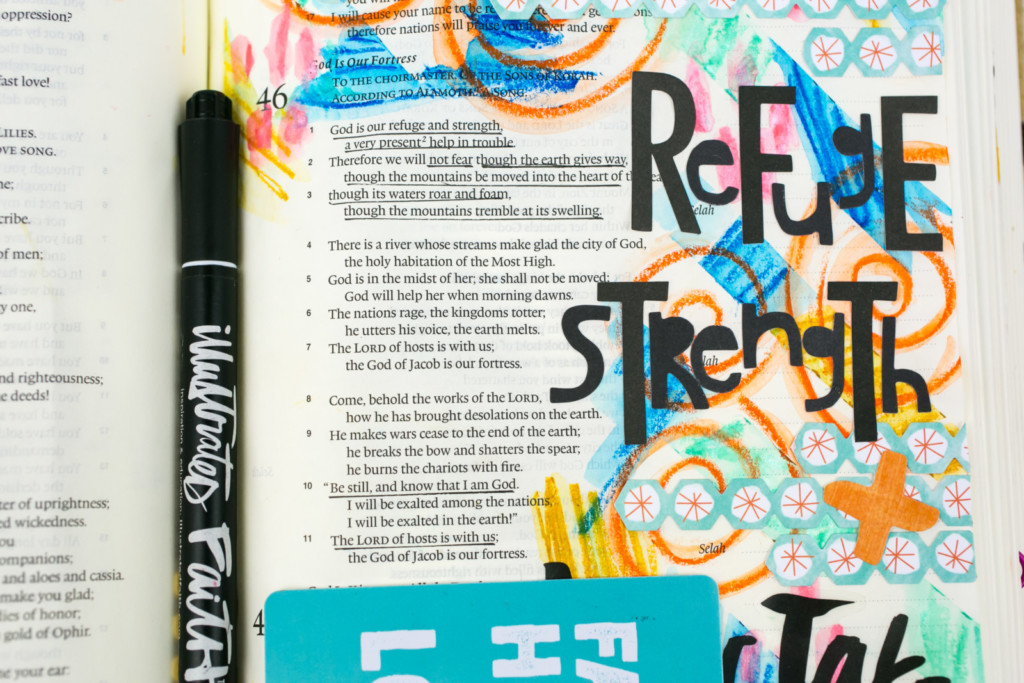 oppression?
fast love!
LILIES.
OVE SONG.
me;
cribe.
of men;
y one,
nd righteousness;
e deeds!
ter of uprightness;
ed wickedness.
ou
ompanions;
and aloes and cassia.
make you glad;
lies of honor;
gold of Ophir.
e your ear:
illustrated Faith
17 I will cause your name to be re
therefore nations will praise you forever and ever.
God Is Our Fortress
46 TO THE CHOIRMASTER. OF THE SONS OF KORAH.
ACCORDING TO ALAMOTH. A SONG.
1 God is our refuge and strength,
a very present2 help in trouble.
2 Therefore we will not fear though the earth gives way,
though the mountains be moved into the heart of th
3 though its waters roar and foam,
though the mountains tremble at its swelling. Selah
4 There is a river whose streams make glad the city of God,
the holy habitation of the Most High.
5 God is in the midst of her; she shall not be moved;
God will help her when morning dawns.
6 The nations rage, the kingdoms totter;
he utters his voice, the earth melts.
7 The LORD of hosts is with us;
the God of Jacob is our fortress. lah
8 Come, behold the works of the LORD,
how he has brought desolations on the earth.
9 He makes wars cease to the end of the earth;
he breaks the bow and shatters the spear;
he burns the chariots with fire.
10 “Be still, and know that I am God.
I will be exalted among the nations,
I will be exalted in the earth!”
11 The LORD of hosts is with us;
the God of Jacob is our fortress. Selah
ReFugE
STRengTh
FA
H
LO